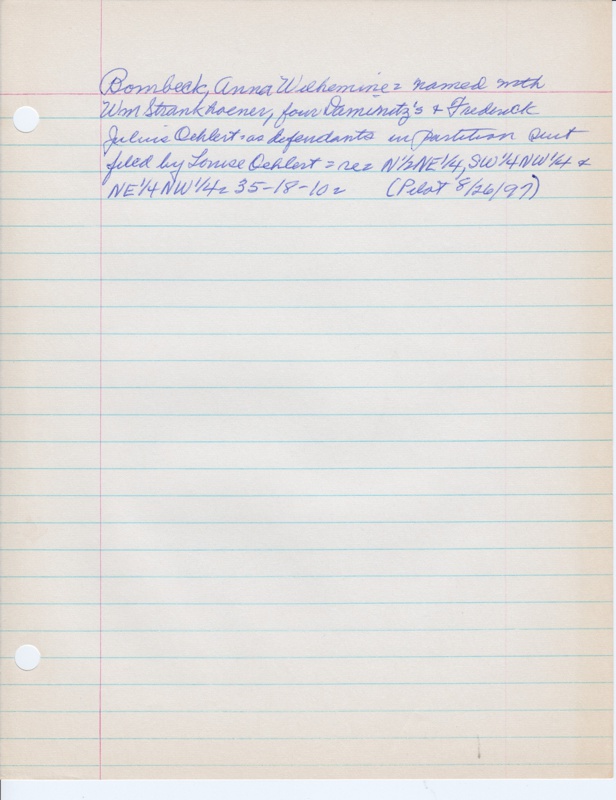 Bombeck, Anna Wilhemine = named with
Wm Strankhoener, four Daminitz's & Frederick
Julius Oehlert = as defendants in partition suit
filed by Louise Oehlert = re = N½NE¼, SW¼NW¼ &
NE¼NW¼ = 35-18-10 = (Pilot 8/26/97)